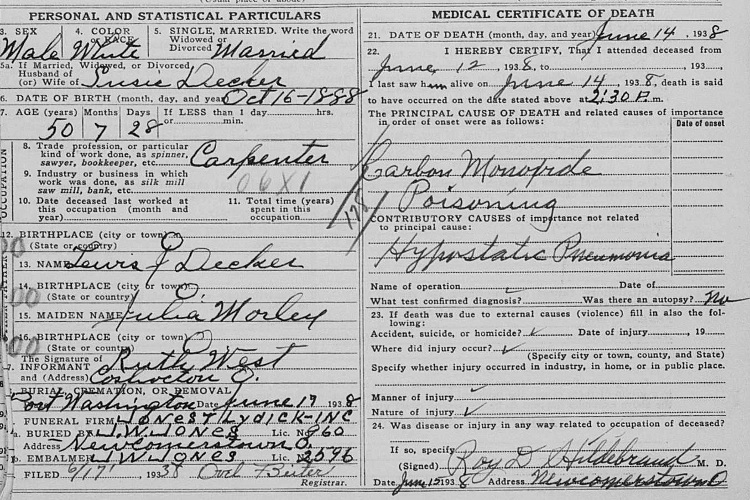 PERSONAL AND STATISTICAL PARTICULARS
3. SEX
4. COLOR or RACE
5. SINGLE, MARRIED. Write the word
Widowed or
Divorced Married
Male White
5a. If Married, Widowed, or Divorced
Husband of
(or) Wife of Susie Decker
6. DATE OF BIRTH (month, day, and year) Oct 16-1888
7. AGE (years) Months Days If LESS than 1 day hrs.
or min.
50 7 28
OCCUPATION
8. Trade profession, or particular
kind of work done, as spinner,
sawyer, bookkeeper, etc. Carpenter
9. Industry or business in which
work was done, as silk mill
saw mill, bank, etc.
06X1
10. Date deceased last worked at
this occupation (month and
year)
11. Total time (years)
spent in this
occupation
12. BIRTHPLACE (city or town)
(State or country) O.
13. NAME Lewis J Decker
14. BIRTHPLACE (city or town)
(State or country) O.
15. MAIDEN NAME Julia Morley
16. BIRTHPLACE (city or town)
(State or country) O.
The Signature of
17. INFORMANT Ruth West
and (Address) Coshocton O.
BURIAL, CREMATION, OR REMOVAL
Port Washington Date June 17 1938
FUNERAL FIRM JONES & LYDICK-INC
a. BURIED BY J.W. JONES Lic. No. 860
Address Newcomerstown O.
b. EMBALMER J.W. JONES Lic. 2596
FILED 6/17 1938
Registrar.
MEDICAL CERTIFICATE OF DEATH
21. DATE OF DEATH (month, day, and year) June 14, 1938
22. I HEREBY CERTIFY, That I attended deceased from
June 12 1938, to , 193 ,
I last saw him alive on June 14, 1938, death is said
to have occurred on the date stated above at 2:30 P. m.
The PRINCIPAL CAUSE OF DEATH and related causes of importance
in order of onset were as follows:
Date of onset
Carbon Monoxide
Poisoning
178
CONTRIBUTORY CAUSES of importance not related
to principal cause:
Hypostatic Pneumonia
Name of operation Date of
What test confirmed diagnosis? Was there an autopsy? No
23. If death was due to external causes (violence) fill in also the fol-
lowing:
Accident, suicide, or homicide? Date of injury , 19
Where did injury occur?
(Specify city or town, county, and State)
Specify whether injury occurred in industry, in home, or in public place.
Manner of injury
Nature of injury
24. Was disease or injury in any way related to occupation of deceased?
If so, specify
(Signed) Roy D Hildebrand M. D.
Date June 15 1938 Address Newcomerstown O